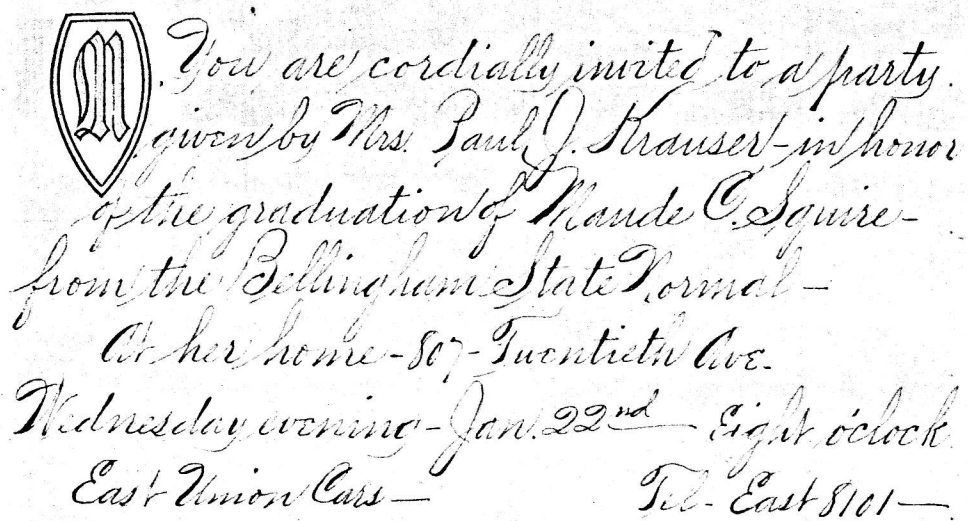 M
You are cordially invited to a party.
given by Mrs. Paul J. Krauser - in honor
of the graduation of Maude C. Squire -
from the Bellingham State Normal -
At her home - 807 - Twentieth Ave.
Wednesday evening - Jan. 22nd Eight o'clock.
East Union Cars - Tel - East 8101 -